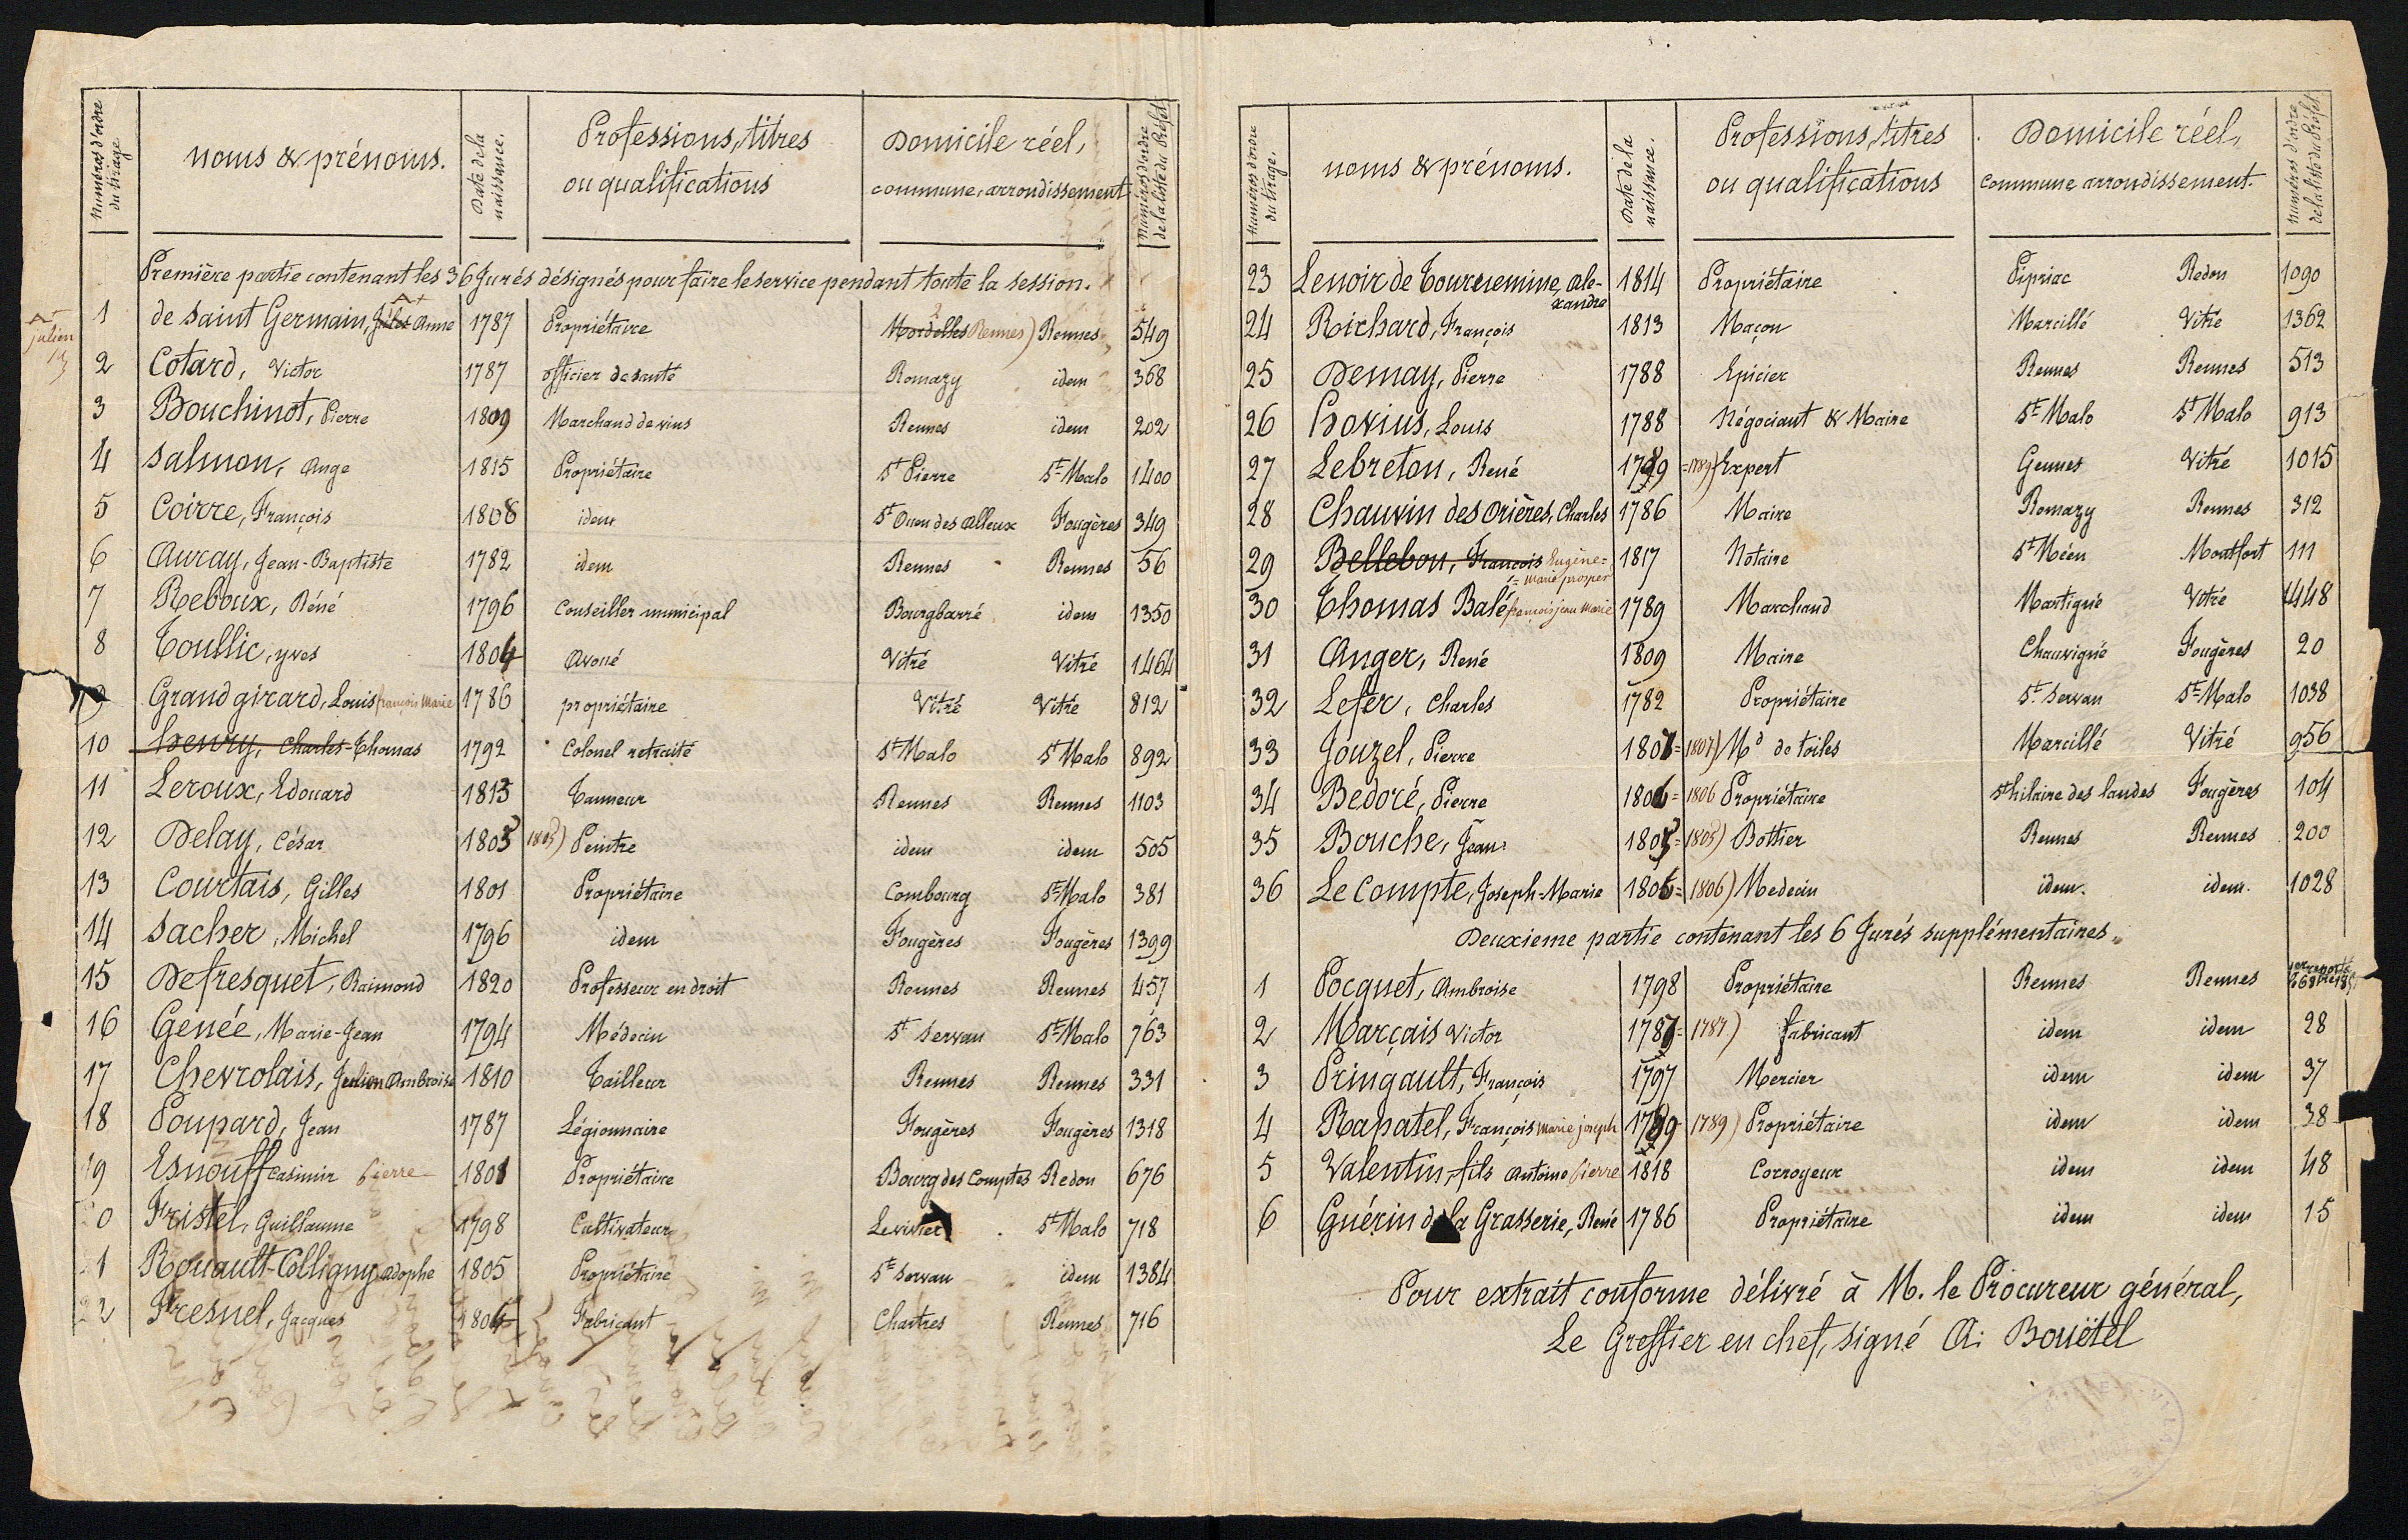 Numéros d'ordre du tirage
noms & prénoms.
Date de la naissance.
Professions, titres ou qualifications
Domicile réel, commune, arrondissement
Numéros d'ordre de la liste du Préfet
Première partie contenant les 36 Jurés désignés pour faire le service pendant toute la session.
julien
1 de Saint Germain, Jules Anne 1787 Propriétaire Mordelles Rennes) Rennes 549
2 Cotard, Victor 1787 officier de santé Romazy idem 368
3 Bouchinot, Pierre 1809 Marchand de vins Rennes idem 202
4 Salmon, Ange 1815 Propriétaire St Pierre St Malo 1400
5 Coirre, François 1808 idem St Ouen des Alleux Fougères 349
6 Auvray, Jean-Baptiste 1782 idem Rennes Rennes 56
7 Reboux, Réné 1796 Conseiller municipal Bourgbarré idem 1350
8 Toullic, yves 1804 Avoué Vitré Vitré 1464
9 Grandgirard, Louis françois Marie 1786 propriétaire Vitré Vitré 812
10 henry, Charles-Thomas 1792 Colonel retraité St Malo St Malo 892
11 Leroux, Edouard 1813 Tanneur Rennes Rennes 1103
12 Delay, César 1805 1805) Peintre idem idem 505
13 Courtais, Gilles 1801 Propriétaire Combourg St Malo 381
14 Sacher, Michel 1796 idem Fougères Fougères 1399
15 Defresquet, Raimond 1820 Professeur en droit Rennes Rennes 457
16 Genée, Marie-Jean 1794 Médecin St Servan St Malo 763
17 Chevrolais, Julien Ambroise 1810 Tailleur Rennes Rennes 331
18 Poupard, Jean 1787 Légionnaire Fougères Fougères 1318
19 Esnouff Casimir Pierre 1801 Propriétaire Bourg des Comptes Redon 676
0 Fristel, Guillaume 1798 Cultivateur Levivier St Malo 718
21 Rouault-Colligny, adophe 1805 Propriétaire St Servan idem 1384
22 Fresnel, Jacques 1804 Fabricant Chartres Rennes 716
Numéros d'ordre du tirage.
noms & prénoms.
Date de la naissance.
Professions, titres ou qualifications
Domicile réel, commune arrondissement.
Numéros d'ordre de la liste du Préfet
23 Lenoir de Tournemine, Alexandre 1814 Propriétaire Pipriac Redon 1090
24 Richard, François 1813 Maçon Marcillé Vitré 1362
25 Demay, Pierre 1788 Epicier Rennes Rennes 513
26 hovius, Louis 1788 Négociant & Maire St Malo St Malo 913
27 Lebreton, René 1789 =1789) Expert Gennes Vitré 1015
28 Chauvin des Orières, Charles 1786 Maire Romazy Rennes 312
29 Bellebon, François Eugène= =Marie prosper 1817 Notaire St Méen Montfort 111
30 Thomas Balé françois jean Marie 1789 Marchand Martigné Vitré 1448
31 Anger, René 1809 Maire Chauvigné Fougères 20
32 Lefer, Charles 1782 Propriétaire St Servan St Malo 1038
33 Jouzel, Pierre 1807= 1807) Md de toiles Marcillé Vitré 956
34 Bedoré, Pierre 1806= 1806 Propriétaire St hilaire des landes Fougères 104
35 Bouche, Jean 1805= 1805) Bottier Rennes Rennes 200
36 Le Compte, Joseph-Marie 1806= 1806) Medecin idem. idem. 1028
Deuxieme partie contenant les 6 Jurés supplémentaires
1 Pocquet, Ambroise 1798 Propriétaire Rennes Rennes
2 Marçais Victor 1787= 1787) fabricant idem idem 28
3 Pringault, François 1797 Mercier idem idem 37
4 Rapatel, François Marie joseph 1789 1789) Propriétaire idem idem 38
5 Valentin, fils Antoine Pierre 1818 Corroyeur idem idem 48
6 Guérin de la Grasserie, René 1786 Propriétaire idem idem 15
Pour extrait conforme délivré à M. le Procureur général,
Le Greffier en chef, signé A: Bouëtel